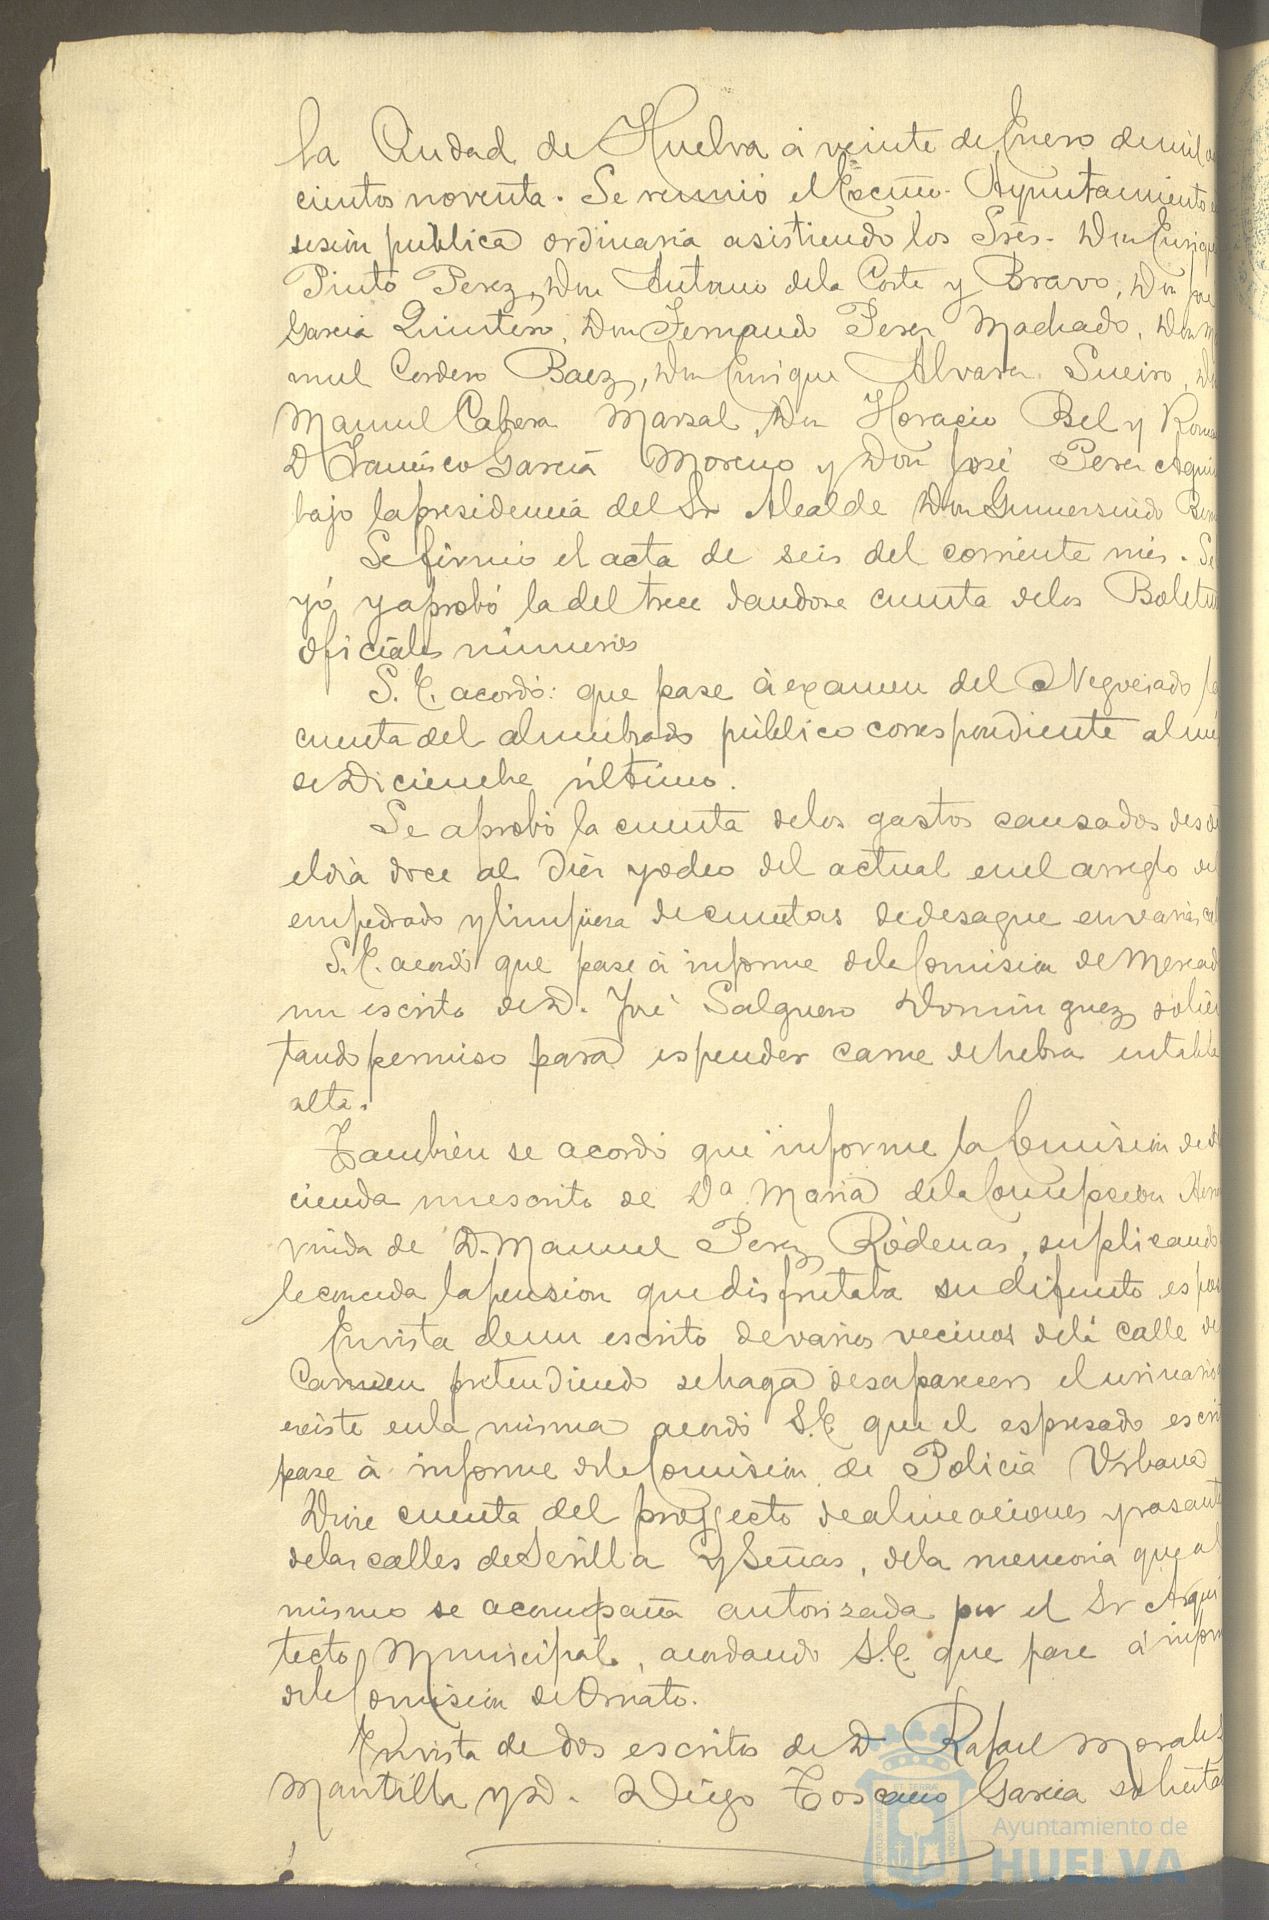 la Ciudad de Huelva á veinte de Enero de mil
cientos noventa. Se reunió el Excmo. Ayuntamiento
sesión publica ordinaria asistiendo los Sres. Don Enriq
Pinto Perez, Don Antonio dela Corte y Bravo, Don
Garcia Quintero, Don Fernando Perez Machado, Don
nuel Cordero Baez, Don Enrique Alvarez Sueiro,
Manuel Cabera Marsal, Don Horacio Bel y Roma
D. Francisco Garcia Moreno y Don José Perez
bajo la presidencia del Sr Alcalde Don Gumersindo
Se firmó el acta de seis del corriente mes. Se
yó y aprobó la del trece dandose cuenta delos Boletin
oficiales números
S. E. acordó: que pase á examen del Negociado
cuenta del alumbrado público correspondiente al me
de Diciembre último.
Se aprobó la cuenta delos gastos causados desde
el dia doce al diez y ocho del actual en el arreglo
empedrado y limpieza de cunetas de desague en varias
S. E. acordó que pase á informe dela Comision de Mercad
un escrito de D. José Salguero Dominguez solici
tando permiso para espender carne de hebra en tabla
alta.
Tambien se acordó que informe la Comision de
cienda un escrito de Dª Maria dela Concepcion
viuda de D. Manuel Perez Ródenas, suplicando
le conceda la pension que disfrutaba su difunto espos
En vista de un escrito de varios vecinos dela calle
Carmen pretendiendo se haga desaparecer el urinario
existe en la misma acordó S. E. que el espresado escrit
pase á informe dela Comision de Policia Urbana
Dióse cuenta del proyecto de alineaciones y rasant
delas calles de Sevilla y Señas, dela memoria que al
mismo se acompaña autorizada por el Sr Arqui
tecto Municipal, acordando S. E. que pase á inform
dela Comision de Ornato.
En vista de dos escritos de D. Rafael Morales
Mantilla y D. Diego Toscano Garcia solicita
Ayuntamiento de
HUELVA